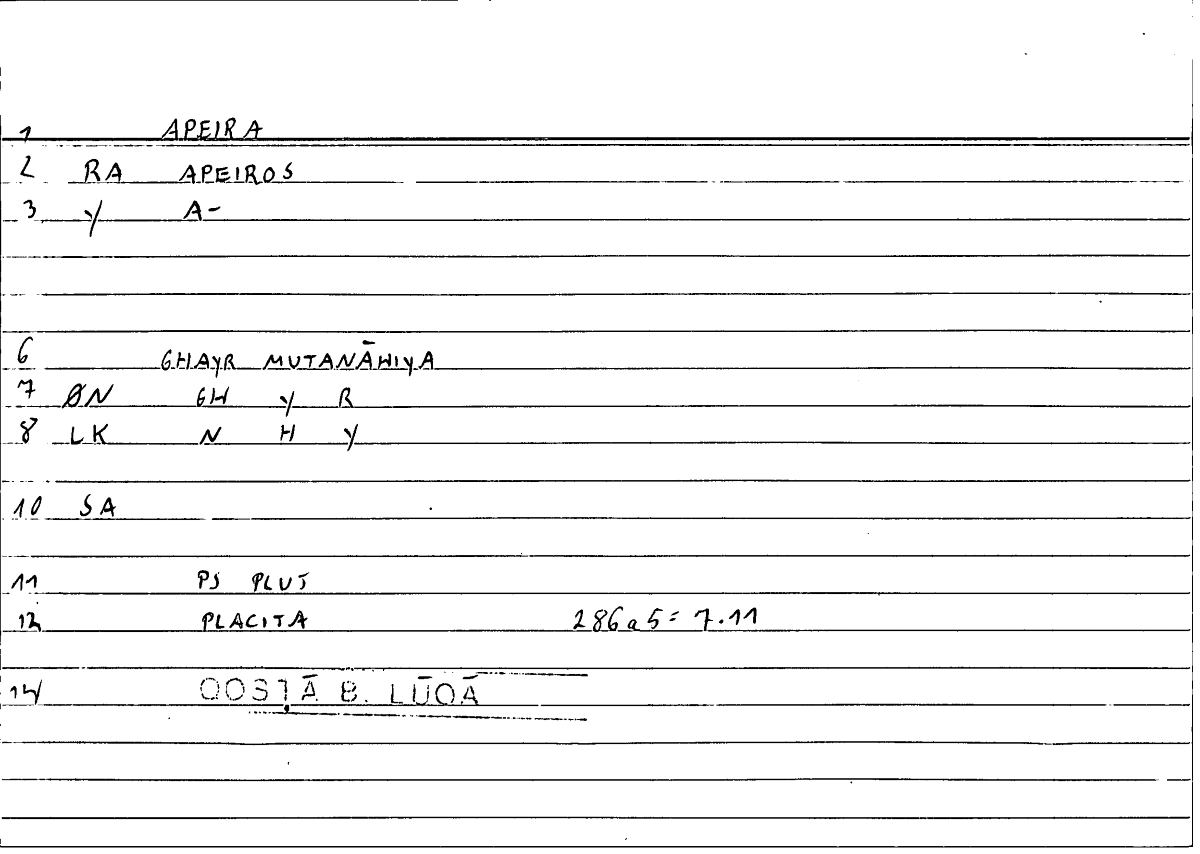 1 APEIRA
2 RA APEIROS
3 Y A-
6 GHAYR MUTANĀHIYA
7 ØN GH Y R
8 LK N H Y
10 SA
11 PS PLUT
12 PLACITA 286a5 = 7.11
14 QOSṬĀ B. LŪQĀ